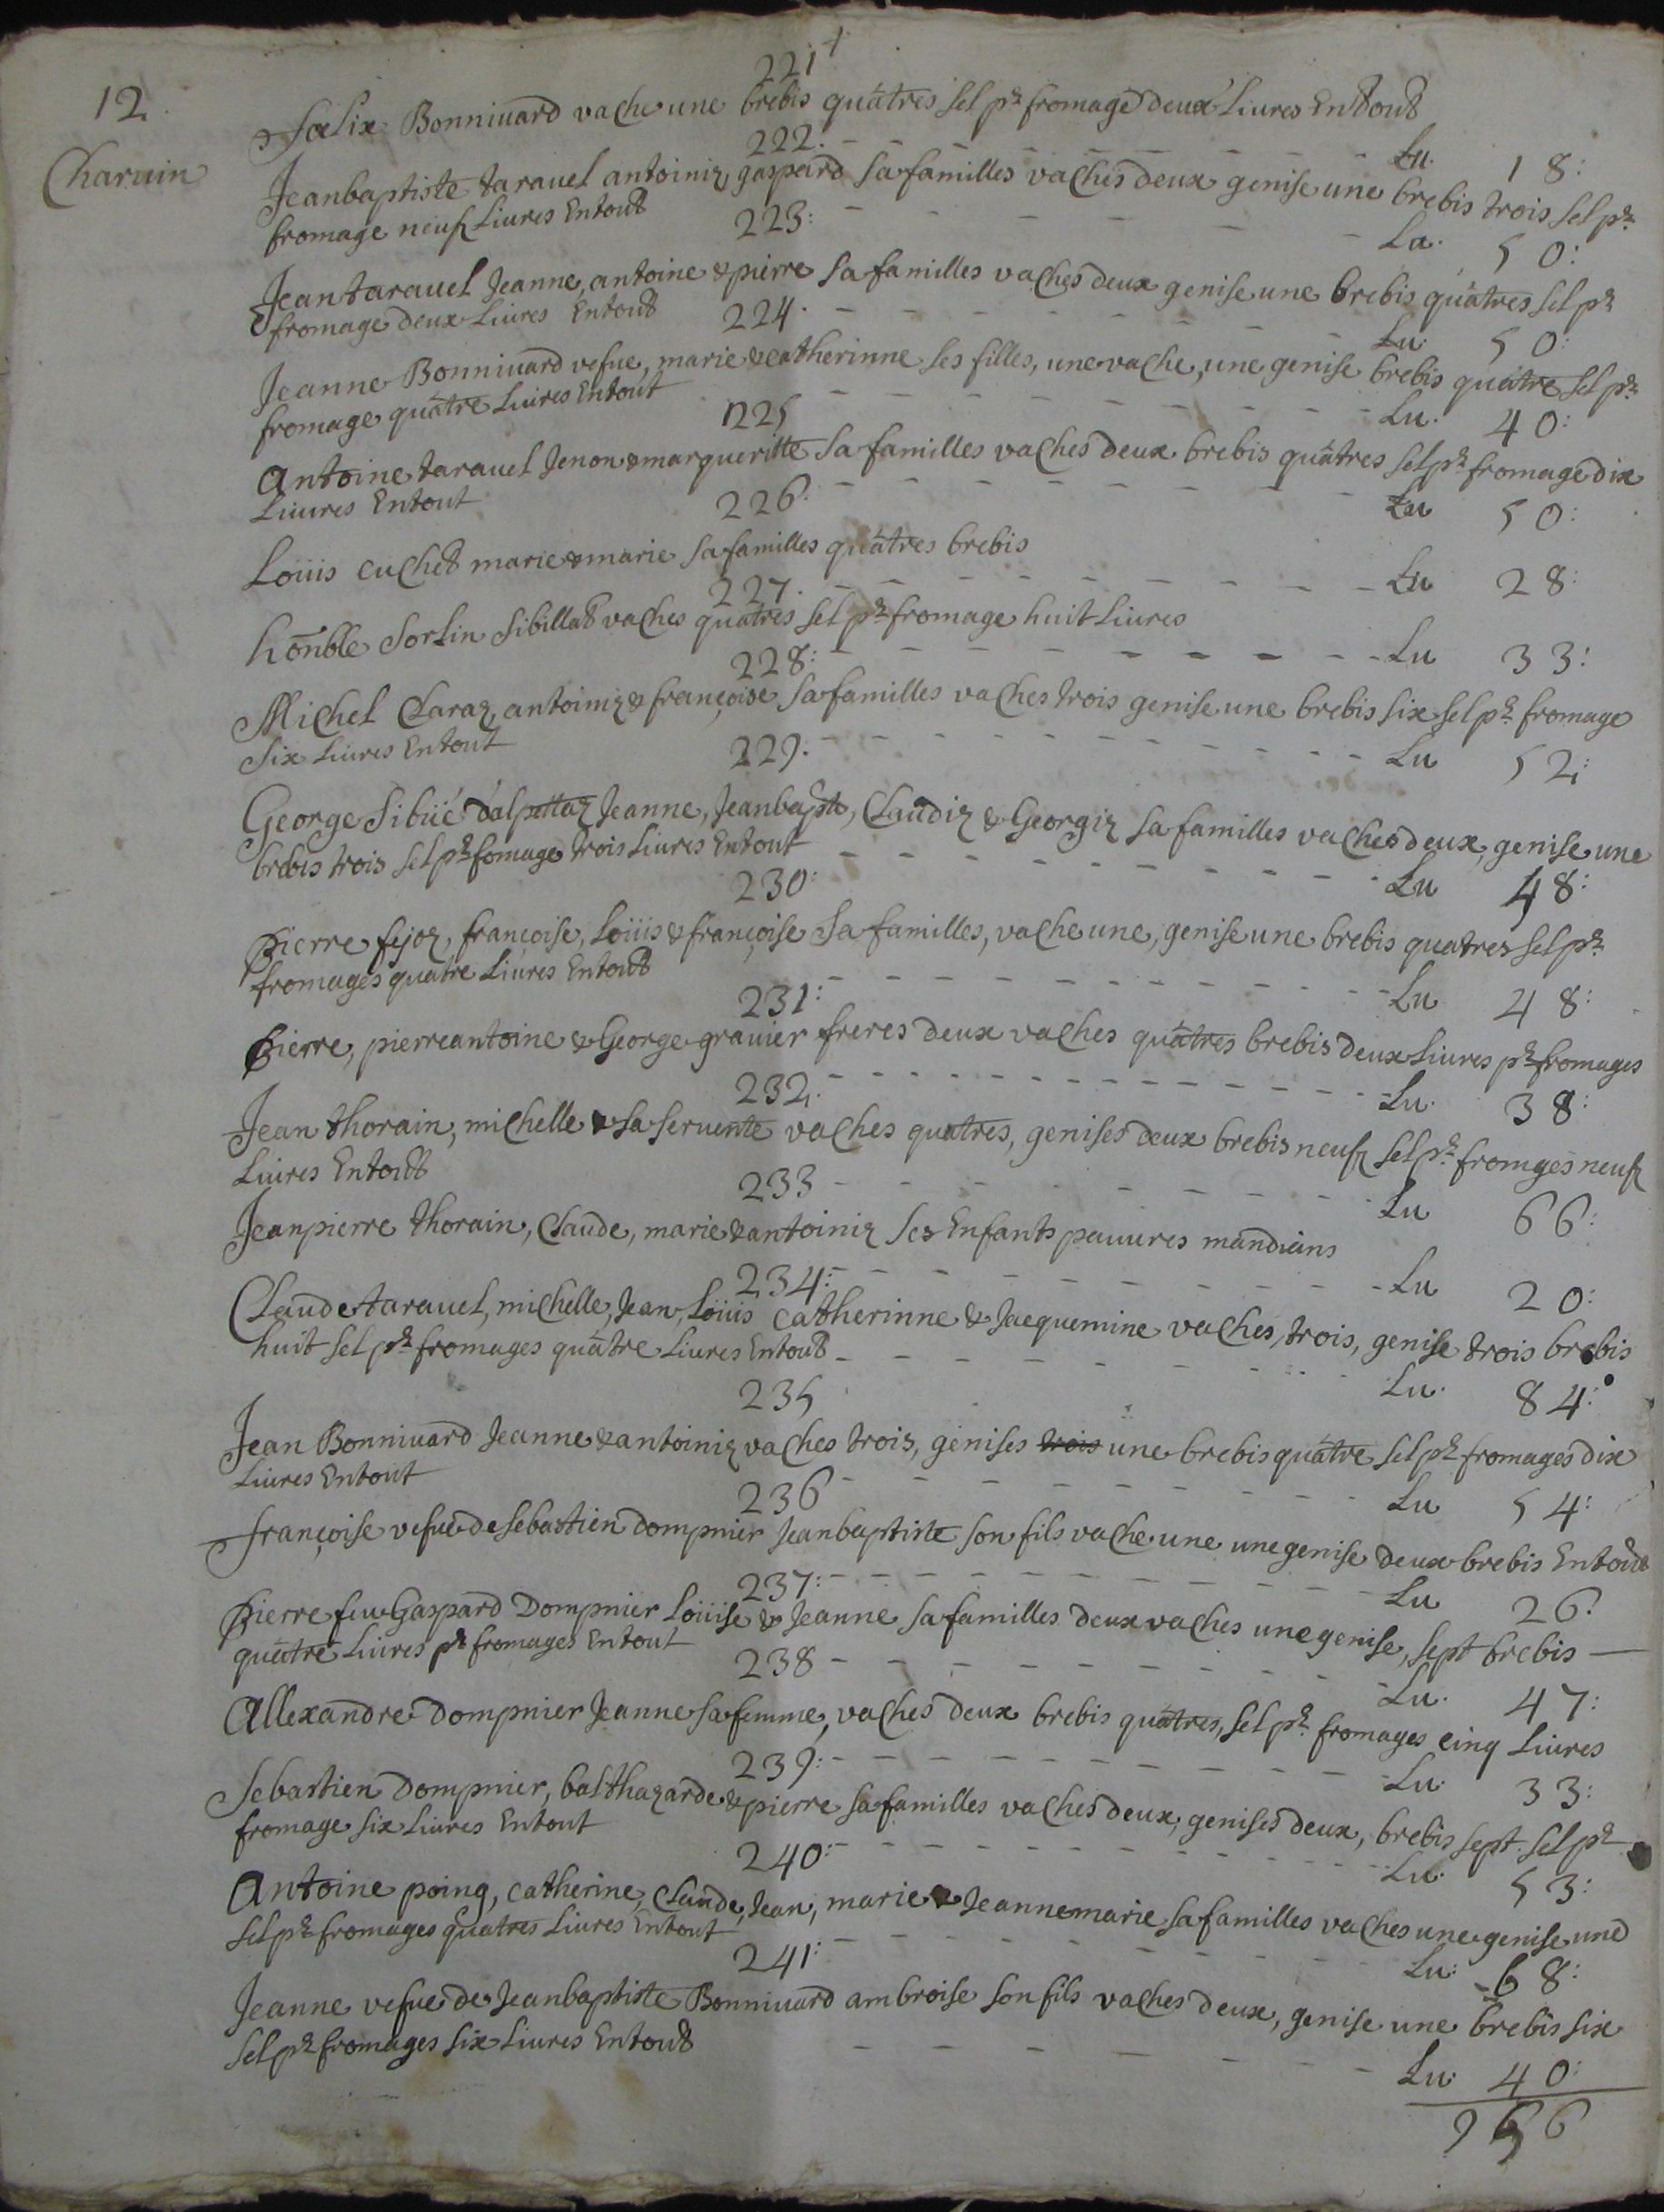 12.
Charuin
221
Felix Bonniuard vache une brebis quâtres sel pr fromage deux Liures Entout
Lu. 18:
222.
Jeanbaptiste tarauel antoiniz gaspard sa familles vaches deux genise une brebis trois sel pr
fromage neuf Liures Entout
La. 50:
223:
Jean tarauel Jeanne, antoine & pierre sa familles vaches deux genise une brebis quâtres sel pr
fromage deux Liures Entout
Lu. 50:
224.
Jeanne Bonniuard vefue, marie & catherinne ses filles, une vache, une genise brebis quâtre sel pr
fromage quâtre Liures Entout
Lu. 40:
225
Antoine tarauel Jenon & margueritte sa familles vaches deux brebis quâtres sel pr fromage dix
Liures Entout
Lu 50:
226.
Loüis cuchet marie & marie sa familles quâtres brebis
Lu 28:
227.
honble Sorlin Sibillat vaches quâtres sel pr fromage huit Liures
Lu 33:
228:
Michel Claraz, antoiniz & françoise sa familles vaches trois genise une brebis six sel pr fromage
Six Liures Entout
Lu 52:
229.
George Sibüé dalpettaz Jeanne, Jeanbapte, Claudiz & Georgiz sa familles vaches deux, genise une
brebis trois sel pr fomage trois Liures Entout
Lu 48:
230:
Pierre fejoz, françoise, Loüis & françoise sa familles, vache une, genise une brebis quatres sel pr
fromages quatre Liures Entout
Lu 48:
231:
Pierre, pierreantoine & George grauier freres deux vaches quâtres brebis deux Liures pr fromages
Lu. 38:
232.
Jean thorain, michelle & sa seruente vaches quatres, genises deux brebis neuf sel pr fromges neuf
Liures Entout
Lu 66:
233
Jeanpierre thorain, Claude, marie & antoiniz ses Enfants pauures mandians
Lu 20:
234:
Claude tarauel, michelle, Jean, Loüis catherinne & Jacquemine vaches, trois, genise trois brebis
huit sel pr fromages quâtre Liures Entout
Lu. 84:
235
Jean Bonniuard Jeanne & antoiniz vaches trois, genises trois une brebis quâtre sel pr fromages dix
Liures Entout
Lu 54:
236
françoise vefue de Sebastien dompnier Jeanbaptiste son fils vache une une genise deux brebis Entout
Lu 26.
237:
Pierre feu Gaspard Dompnier Loüise & Jeanne sa familles deux vaches une genise, sept brebis
quatre Liures pr fromages Entout
Lu. 47:
238
Allexandre Dompnier Jeanne sa femme, vaches deux brebis quatres, sel pr fromages cinq Liures
Lu. 33:
239:
Sebastien Dompnier, balthazarde & pierre sa familles vaches deux, genises deux, brebis sept sel pr
fromage six Liures Entout
Lu. 53:
240:
Antoine poing, catherine, Claude, Jean, marie & Jeannemarie sa familles vaches une genise une
sel pr fromages quatres Liures Entout
Lu: 68:
241:
Jeanne vefue de Jeanbaptiste Bonniuard ambroise son fils vaches deux, genise une brebis six
sel pr fromages six Liures Entout
Lu: 40: